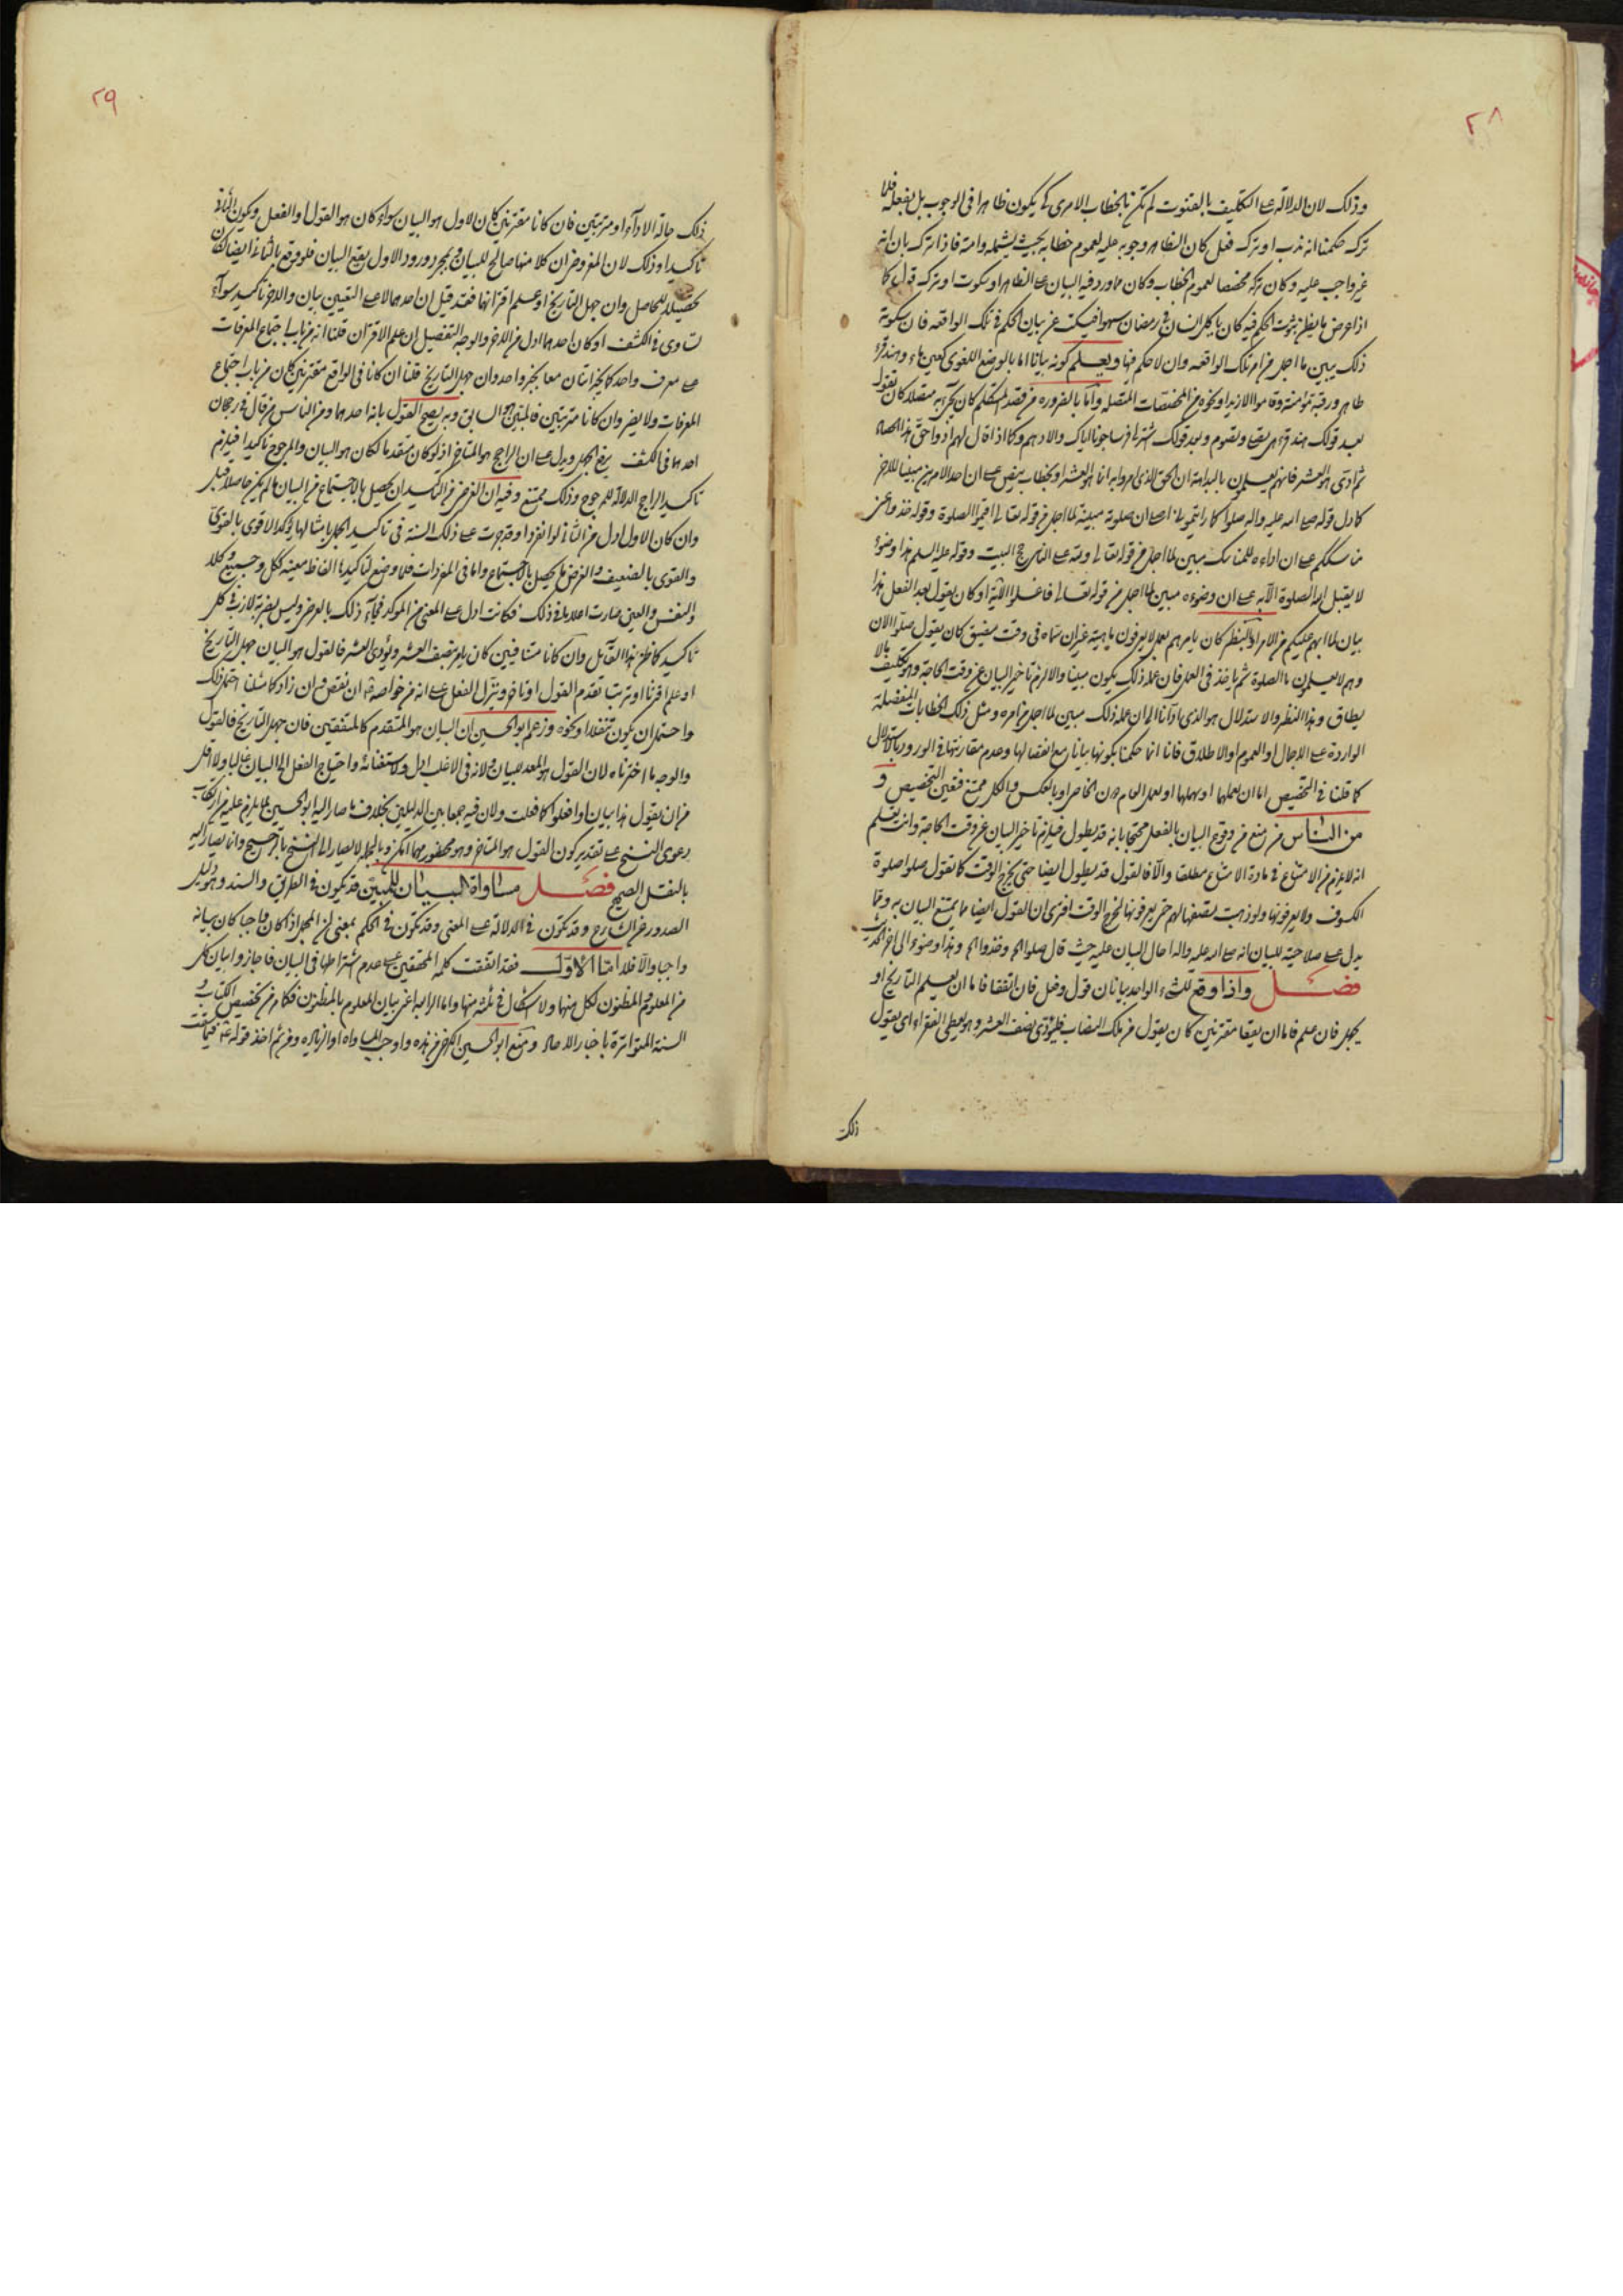 ٢٨
وذلك لان الدلالة على التكليف بالقنوت لم تكن بالخطاب الامرى كى يكون ظاهرا فى الوجوب بل بفعله فلما
تركه حكمنا انه ندب او ترك فعل كان الظاهر وجوبه عليه لعموم خطابه بحيث يشمله وامته فاذا تركه بان انه
غير واجب عليه وكان تركه مخصصا لعموم الخطاب وكان مورد فيه البيان على الظاهر او سكوت او ترك قول كما
اذا عرض ما يظن ثبوت الحكم فيه كان ياكل انسان فى رمضان سهوا فيسكت عن بيان الحكم فى تلك الواقعه فان سكوته
ذلك يبين ما اجمل من امر تلك الواقعه وان لا حكم فيها ويعلم كونه بيانا اما بالوضع اللغوى كعين ماء وهند قرء
طاهر ورقبة مؤمنة وقاموا الا زيدا ونحوه من المخصصات المتصله واما بالضروره من قصد المتكلم كان يقول
بعد قولك هند قرء هى تصلى وتصوم وبعد قولك اشتر فرسا جونا اياك والادهم وكما اذا قال لهم ادوا حق هذا الحصاد
ثم ادى هو العشر فانهم يعلمون بالبداهة ان الحق الذى امروا به انما هو العشر او بخطاب ينص على ان احد الامرين مبينا للاخر
كما دل قوله صلى الله عليه واله صلوا كما رايتمونى اصلى ان صلوته مبينة لما اجمل فى قوله تعالى اقيموا الصلوة وقوله خذوا عنى
مناسككم على ان اداءه للمناسك مبين لما اجمل فى قوله تعالى ولله على الناس حج البيت وقوله عليه السلم هذا وضوء
لا يقبل الله الصلوة الا به على ان وضوءه مبين لما اجمل من قوله تعالى فاغسلوا الاية او كان يقول بعد الفعل هذا
بيان لما ابهم عليكم من الامر او بالنظر كان يامرهم بعمل لا يعرفون ماهيته غير ان سماه فى وقت مضيق كان يقول صلوا الان
وهم لا يعلمون ما الصلوة ثم ياخذ فى العمل فان عمله ذلك يكون مبينا والا لزم تاخير البيان عن وقت الحاجة وهو تكليف بما لا
يطاق وهذا النظر والاستدلال هو الذى ادانا الى ان عمله ذلك مبين لما اجمل من امره ومثل ذلك الخطابات المنفصلة
الواردة على الاجمال او العموم او الاطلاق فانا انما حكمنا بكونها بيانا مع انفصالها وعدم مقارنتها فى الورود بالاستدلال
كما قلنا فى التخصيص اما ان نعملهما او نهملهما او نعمل العام دون الخاص او بالعكس والكل ممتنع فتعين التخصيص و
من الناس من منع من وقوع البيان بالفعل محتجا بانه قد يطول فيلزم تاخير البيان عن وقت الحاجة وانت تعلم
انه لا يلزم من الامتناع فى مادة الامتناع مطلقا والا فالقول قد يطول ايضا حتى يخرج الوقت كما تقول صلوا صلوة
الكسوف ولا يعرفونها ولو ذهبت تصفها لهم حتى يعرفونها لخرج الوقت افترى ان القول ايضا مما يمتنع البيان به ومما
يدل على صلاحيته للبيان انه صلى الله عليه واله احال البيان عليه حيث قال صلوا الخ وخذوا الخ وهذا وضوء الى اخر الحديث
فصل واذا وقع للشىء الواحد بيانان قول وفعل فان اتفقا فاما ان يعلم التاريخ او
يجهل فان علم فاما ان يقعا مقترنين كان يقول من ملك النصاب فليؤدى نصف العشر وهو يعطى الفقراء اى يقول
ذلك
٢٩
ذلك حالة الاداء او مترتبين فان كانا مقترنين كان الاول هو البيان سواء كان هو القول او الفعل ويكون الثانى
تاكيدا وذلك لان المفروض ان كلا منهما صالح للبيان وبمجرد ورود الاول يقع البيان فلو وقع بالثانى ايضا لكان
تحصيلا للحاصل وان جهل التاريخ او علم اقترانهما فقد قيل ان احدهما لا على التعيين بيان والاخر تاكيد سواء
تساوى فى الكشف او كان احدهما ادل من الاخر والوجه التفصيل ان علم الاقتران قلنا انه من باب اجتماع المعرفات
على معرف واحد كما يخبر اثنان معا بخبر واحد وان جهل التاريخ قلنا ان كانا فى الواقع مقترنين كان من باب اجتماع
المعرفات ولا يضر وان كانا مترتبين فالمبين هو السابق وبه يصح القول بانه احدهما ومن الناس من قال فى رجحان
احدهما فى الكشف مع الجهل ويدل على ان الراجح هو المتاخر اذ لو كان متقدما لكان هو البيان والمرجوح تاكيدا فيلزم
تاكيد الراجح الدلالة للمرجوح وذلك ممتنع وفيه ان الغرض من التاكيد ان يحصل بالاجتماع من البيان ما لم يكن حاصلا قبل
وان كان الاول ادل من الثانى لو انفردا وقد جرت على ذلك السنة فى تاكيد الجمل بامثالها يؤكد الاقوى بالقوى
والقوى بالضعيف والغرض ما يحصل بالاجتماع واما فى المفردات فلما وضع لتاكيدها الفاظ معينه ككل وجميع وكلا
والنفس والعين صارت اعلاما فى ذلك فكانت ادل على المعنى من المؤكد فجاء ذلك بالعرض وليس بضربة لازب فى كل
تاكيد كما ظن هذا القائل وان كانا متنافيين كان يامر بنصف العشر ويؤدى العشر فالقول هو البيان جهل التاريخ
او علم اقترنا او ترتبا تقدم القول او تاخر وينزل الفعل على انه من خواصه ان نقص وان زاد كما مثلنا احتمل ذلك
واحتمل ان يكون تنفلا ونحوه وزعم ابو الحسين ان البيان هو المتقدم كالمتفقين فان جهل التاريخ فالقول
والوجه ما اخترناه لان القول هو المعد للبيان ولانه فى الاغلب ادل ولاستغنائه واحتياج الفعل الى البيان غالبا ولا اقل
من ان يقول هذا بيان او افعلوا كما فعلت ولان فيه جمعا بين الدليلين بخلاف ما صار اليه ابو الحسين لما يلزم عليه من ارتكاب
دعوى النسخ على تقدير كون القول هو المتاخر وهو محظور مهما امكن وبالجمله لا يصار الى النسخ بالترجيح وانما يصار اليه
بالنقل الصحيح فصل مساواة البيان للمبين قد يكون فى الطريق والسند وهو دليل
الصدور عن الشارع وقد تكون فى الدلالة على المعنى وقد تكون فى الحكم بمعنى ان المجمل اذا كان واجبا كان بيانه
واجبا والا فلا اما الاول فقد اتفقت كلمة المحققين على عدم اشتراطها فى البيان فاجازوا بيان كل
من المعلوم والمظنون لكل منهما ولا اشكال فى ثلثة منها واما الرابعه اعنى بيان المعلوم بالمظنون فكما مر من تخصيص الكتاب و
السنة المتواترة باخبار الاحاد ومنع ابو الحسين الكرخى من هذه واوجب المساواه او الزياده ومن ثم اخذ قوله